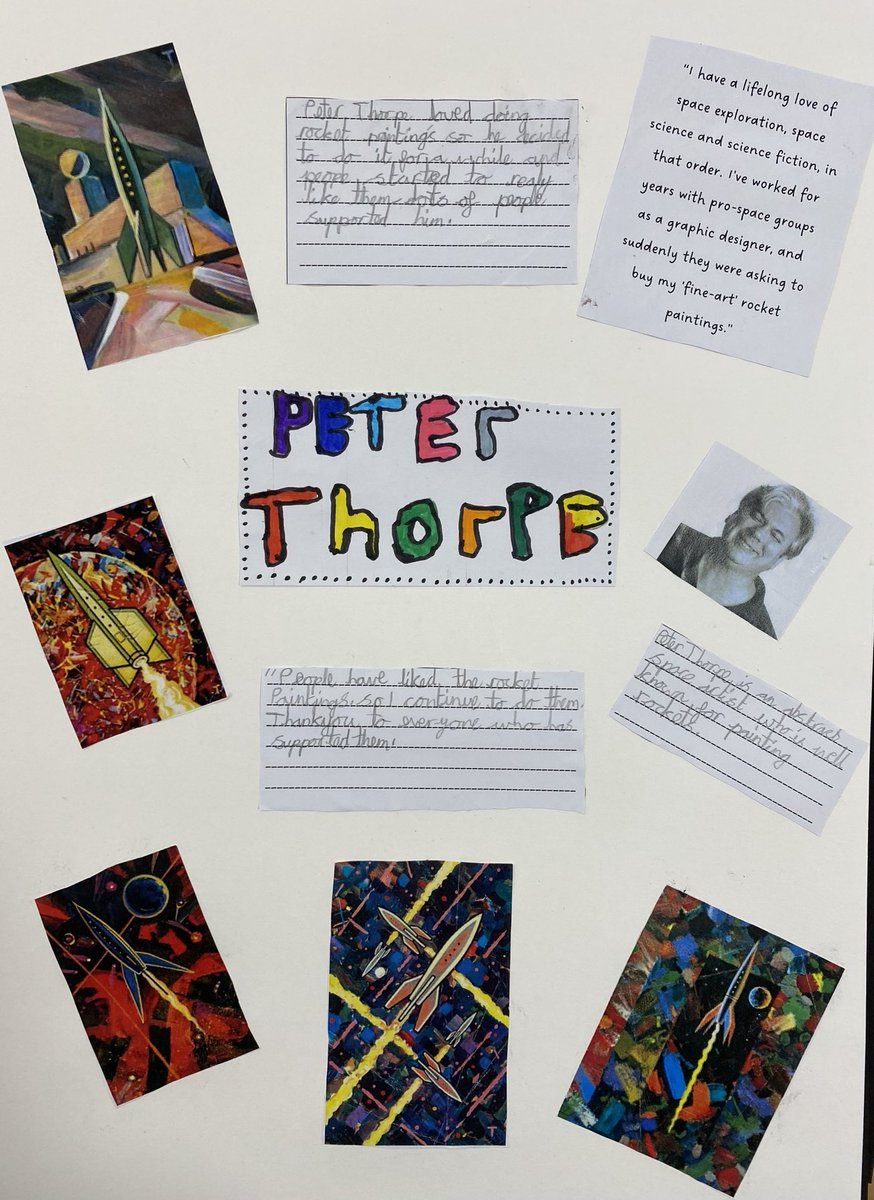 Peter Thorpe loved doing
rocket paintings so he decided
to do it for a while and
people started to realy
like them. Lots of people
supported him.
"I have a lifelong love of
space exploration, space
science and science fiction, in
that order. I've worked for
years with pro-space groups
as a graphic designer, and
suddenly they were asking to
buy my 'fine-art' rocket
paintings."
PETEr
ThOrPE
"People have liked the rocket
Paintings, so I continue to do them.
Thankyou to everyone who has
supported them!
Peter Thorpe is an abstract
space artist who is well
known for painting
rockets.
T
T
T